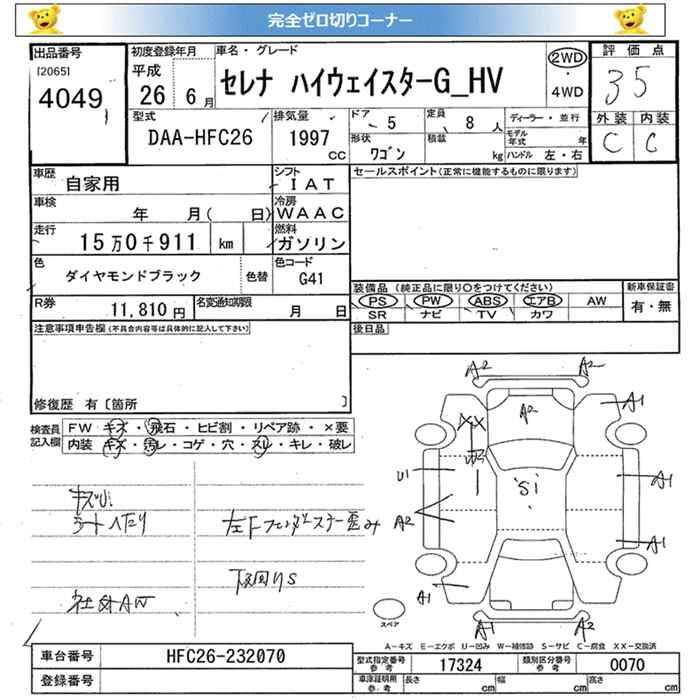 完全ゼロ切りコーナー
出品番号
[2065]
4049
初度登録年月
平成
26 6月
車名・グレード
セレナ ハイウェイスターG_HV
2WD
・
4WD
評価点
35
外装 内装
C C
型式
DAA-HFC26
排気量
1997
cc
ドア
5
定員
8人
形状
ワゴン
積載
kg
ディーラー・並行
モデル年式 年
ハンドル 左・右
車歴
自家用
シフト
IAT
車検
年 月( 日)
冷房
WAAC
走行
15万0千911 km
燃料
ガソリン
色
ダイヤモンドブラック
色替
色コード
G41
R券
11,810円
名変通知期限
月 日
セールスポイント(正常に機能するものに限ります)
装備品(純正品に限り○をつけてください)
PS PW ABS エアB AW
SR ナビ TV カワ
新車保証書
有・無
後日品
注意事項申告欄(不具合内容等は具体的に記入して下さい)
修復歴 有〔箇所 〕
検査員記入欄
FW キズ・飛石・ヒビ割・リペア跡・×要
内装 キズ・汚レ・コゲ・穴・スリ・キレ・破レ
キズ小
シートヘタリ
左Fフェンダーステー歪み
下回りS
社外AW
A2 A2
A1
A2
XX
U1
Si
A1
A2
A1
A1
A1 A2
スペア
A-キズ E-エクボ U-凹み W-補修跡 S-サビ C-腐食 XX-交換済
車台番号
HFC26-232070
登録番号
型式指定番号 参考
17324
類別区分番号 参考
0070
車庫証明用 参考
長さ cm
幅 cm
高さ cm